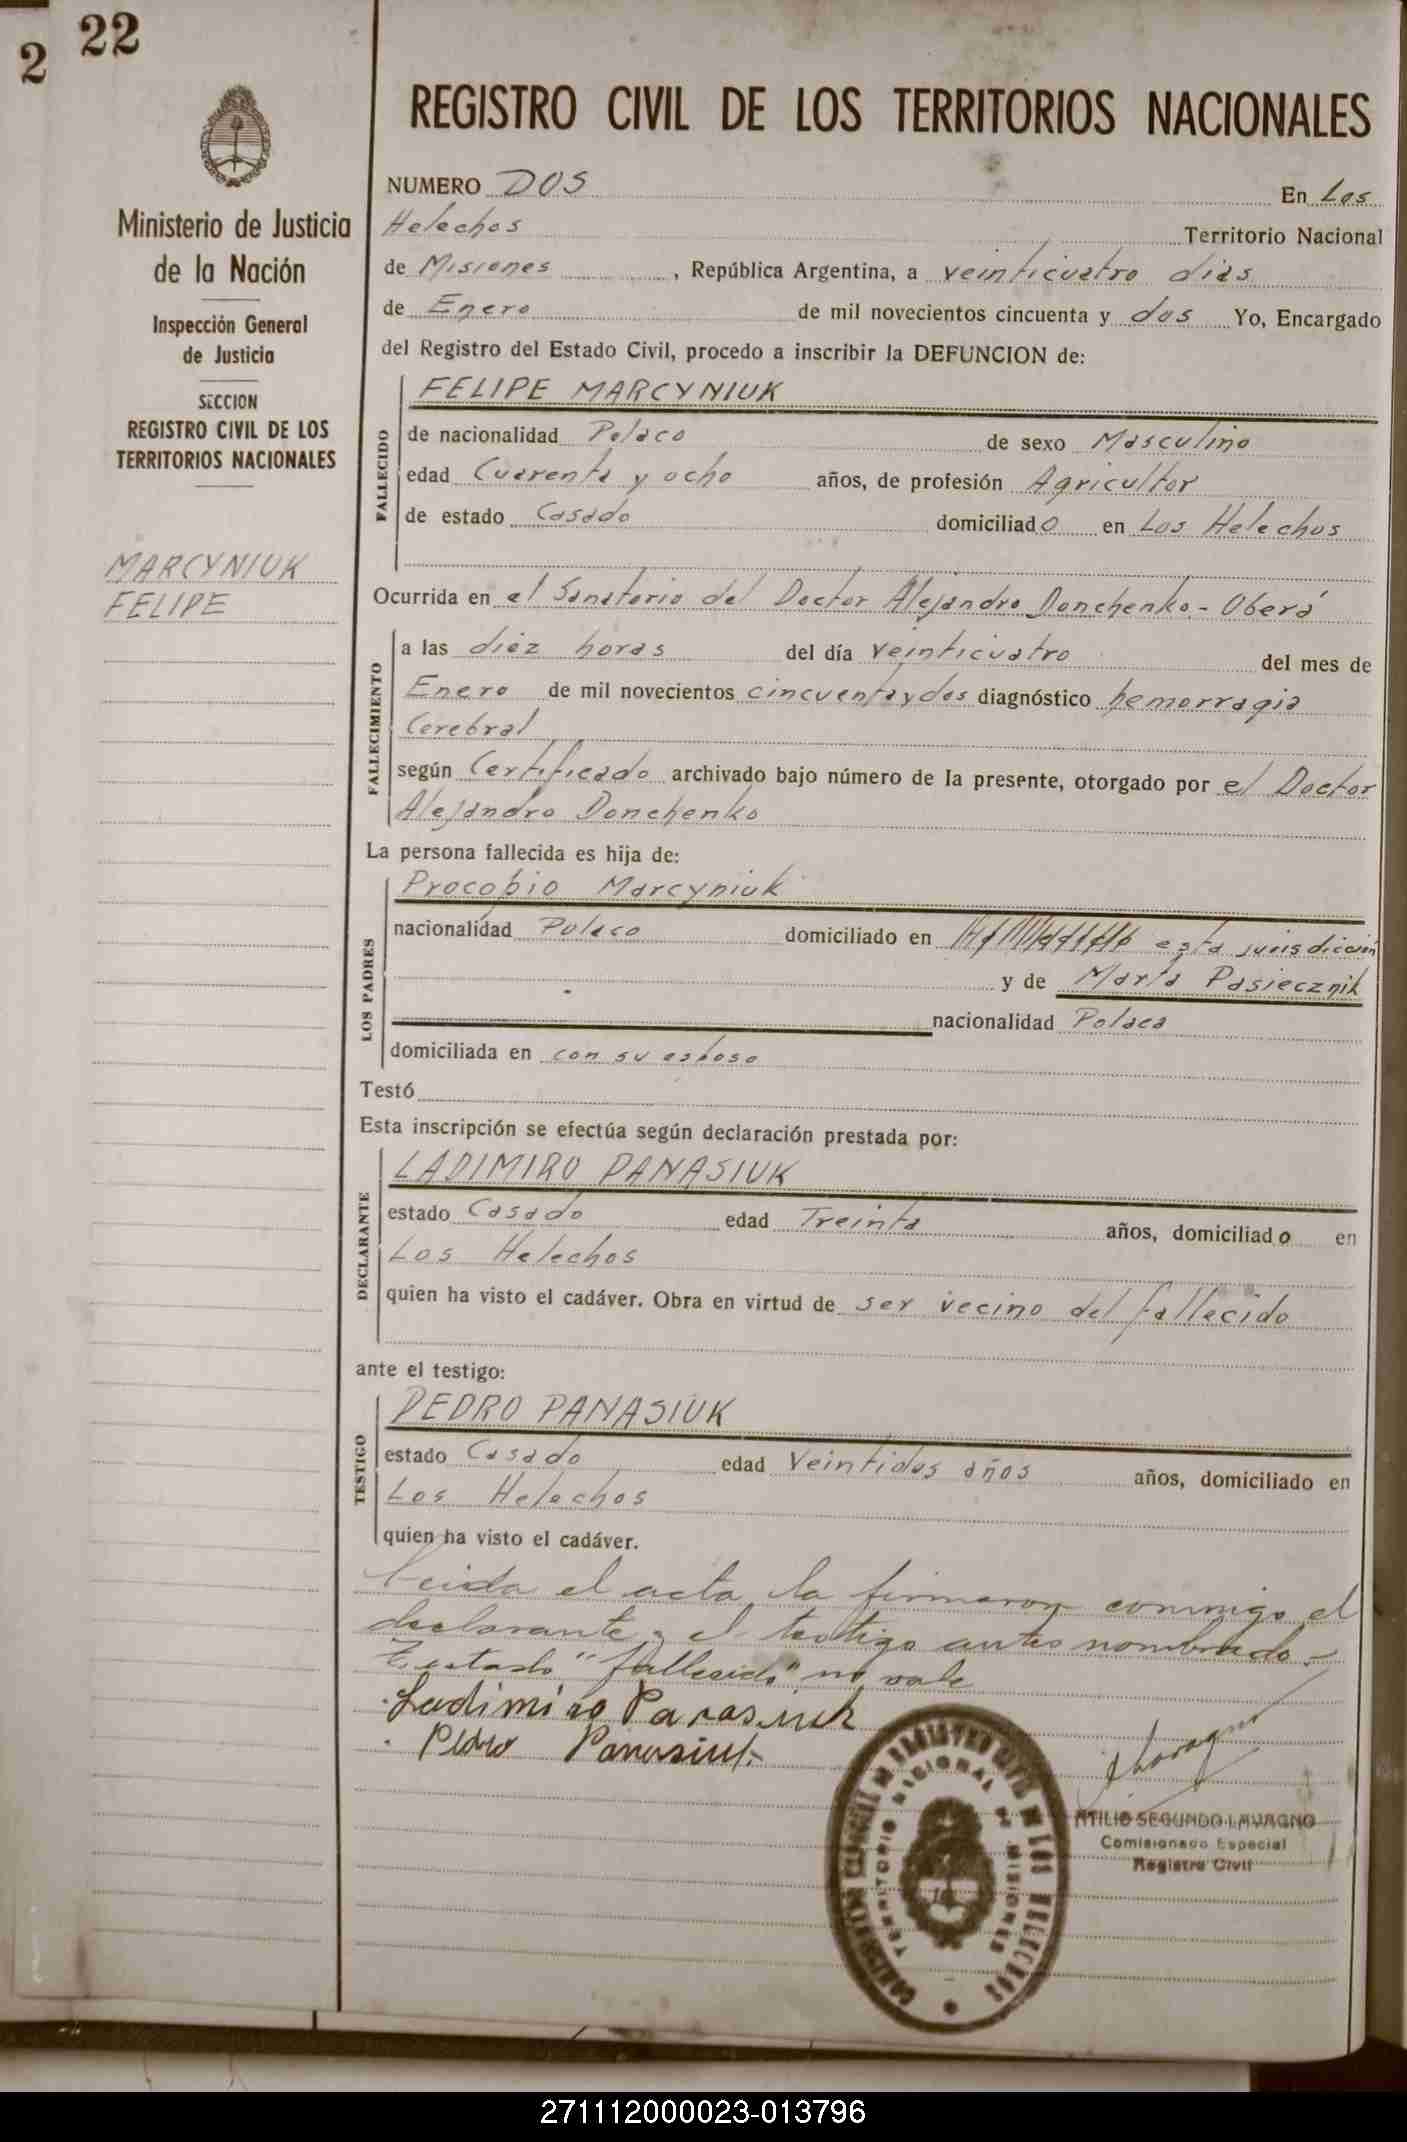 2
22
Ministerio de Justicia
de la Nación
Inspección General
de Justicia
SECCION
REGISTRO CIVIL DE LOS
TERRITORIOS NACIONALES
MARCYNIUK
FELIPE
REGISTRO CIVIL DE LOS TERRITORIOS NACIONALES
NUMERO DOS En Los
Helechos Territorio Nacional
de Misiones, República Argentina, a veinticuatro dias
de Enero de mil novecientos cincuenta y dos Yo, Encargado
del Registro del Estado Civil, procedo a inscribir la DEFUNCION de:
FALLECIDO
FELIPE MARCYNIUK
de nacionalidad Polaco de sexo Masculino
edad Cuarenta y ocho años, de profesión Agricultor
de estado Casado domiciliado en Los Helechos
Ocurrida en el Sanatorio del Doctor Alejandro Donchenko - Oberá
FALLECIMIENTO
a las diez horas del día veinticuatro del mes de
Enero de mil novecientos cincuenta y dos diagnóstico hemorragia
Cerebral
según Certificado archivado bajo número de la presente, otorgado por el Doctor
Alejandro Donchenko
La persona fallecida es hija de:
LOS PADRES
Procopio Marcyniuk
nacionalidad Polaco domiciliado en esta jurisdicción
y de María Pasiecznik
nacionalidad Polaca
domiciliada en con su esposo
Testó
Esta inscripción se efectúa según declaración prestada por:
DECLARANTE
LADIMIRO PANASIUK
estado Casado edad Treinta años, domiciliado en
Los Helechos
quien ha visto el cadáver. Obra en virtud de ser vecino del fallecido
ante el testigo:
TESTIGO
PEDRO PANASIUK
estado Casado edad Veintidos años años, domiciliado en
Los Helechos
quien ha visto el cadáver.
Leida el acta la firmaron conmigo el
declarante y el testigo antes nombrado.-
Testado "fallecido" no vale
Ladimiro Panasiuk
Pedro Panasiuk
ATILIO SEGUNDO LAVAGNO
Comisionado Especial
Registro Civil
TERRITORIO NACIONAL DE MISIONES
271112000023-013796